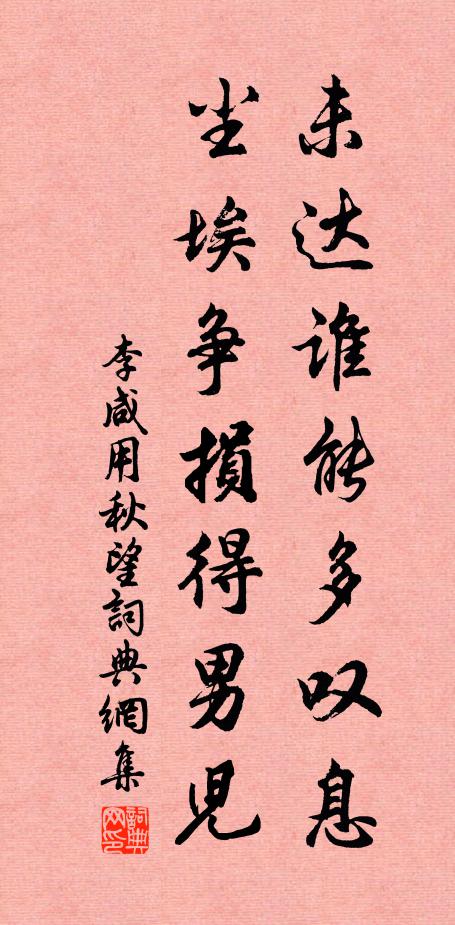 未达谁能多叹息
尘埃争損得男児
李咸用秋望詞典網集
詞典网印